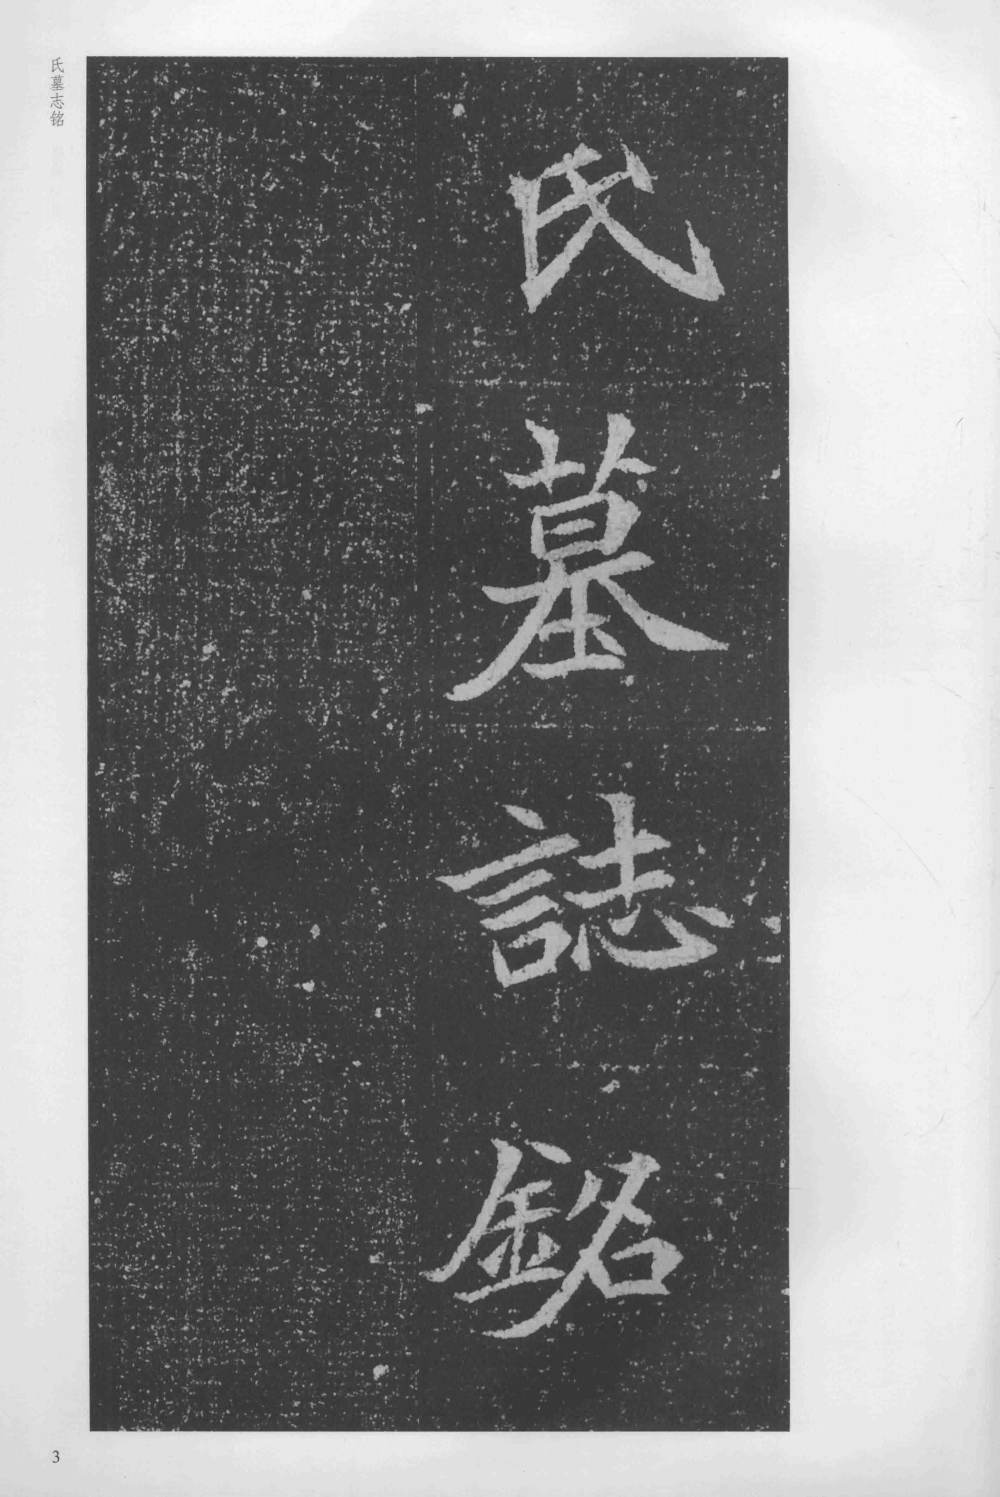 氏墓誌銘
氏墓志铭
3